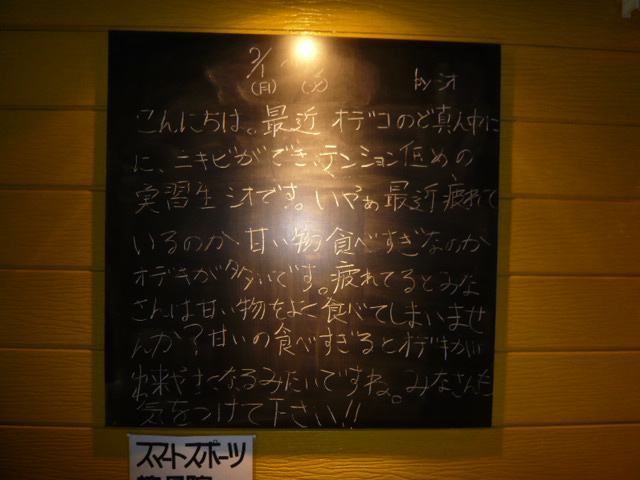 2/1
(月) by シオ
こんにちは。最近 オデコのど真ん中に
に、ニキビができ、テンション低めの
実習生 シオです。いやぁ最近疲れて
いるのか 甘い物 食べすぎなのか
オデキが多いです。疲れてるとみな
さんは甘い物をよく食べてしまいませ
んか?甘いの食べすぎるとオデキが
出来やすくなるみたいですね。みなさんも
気をつけて下さい!!
スマートスポーツ